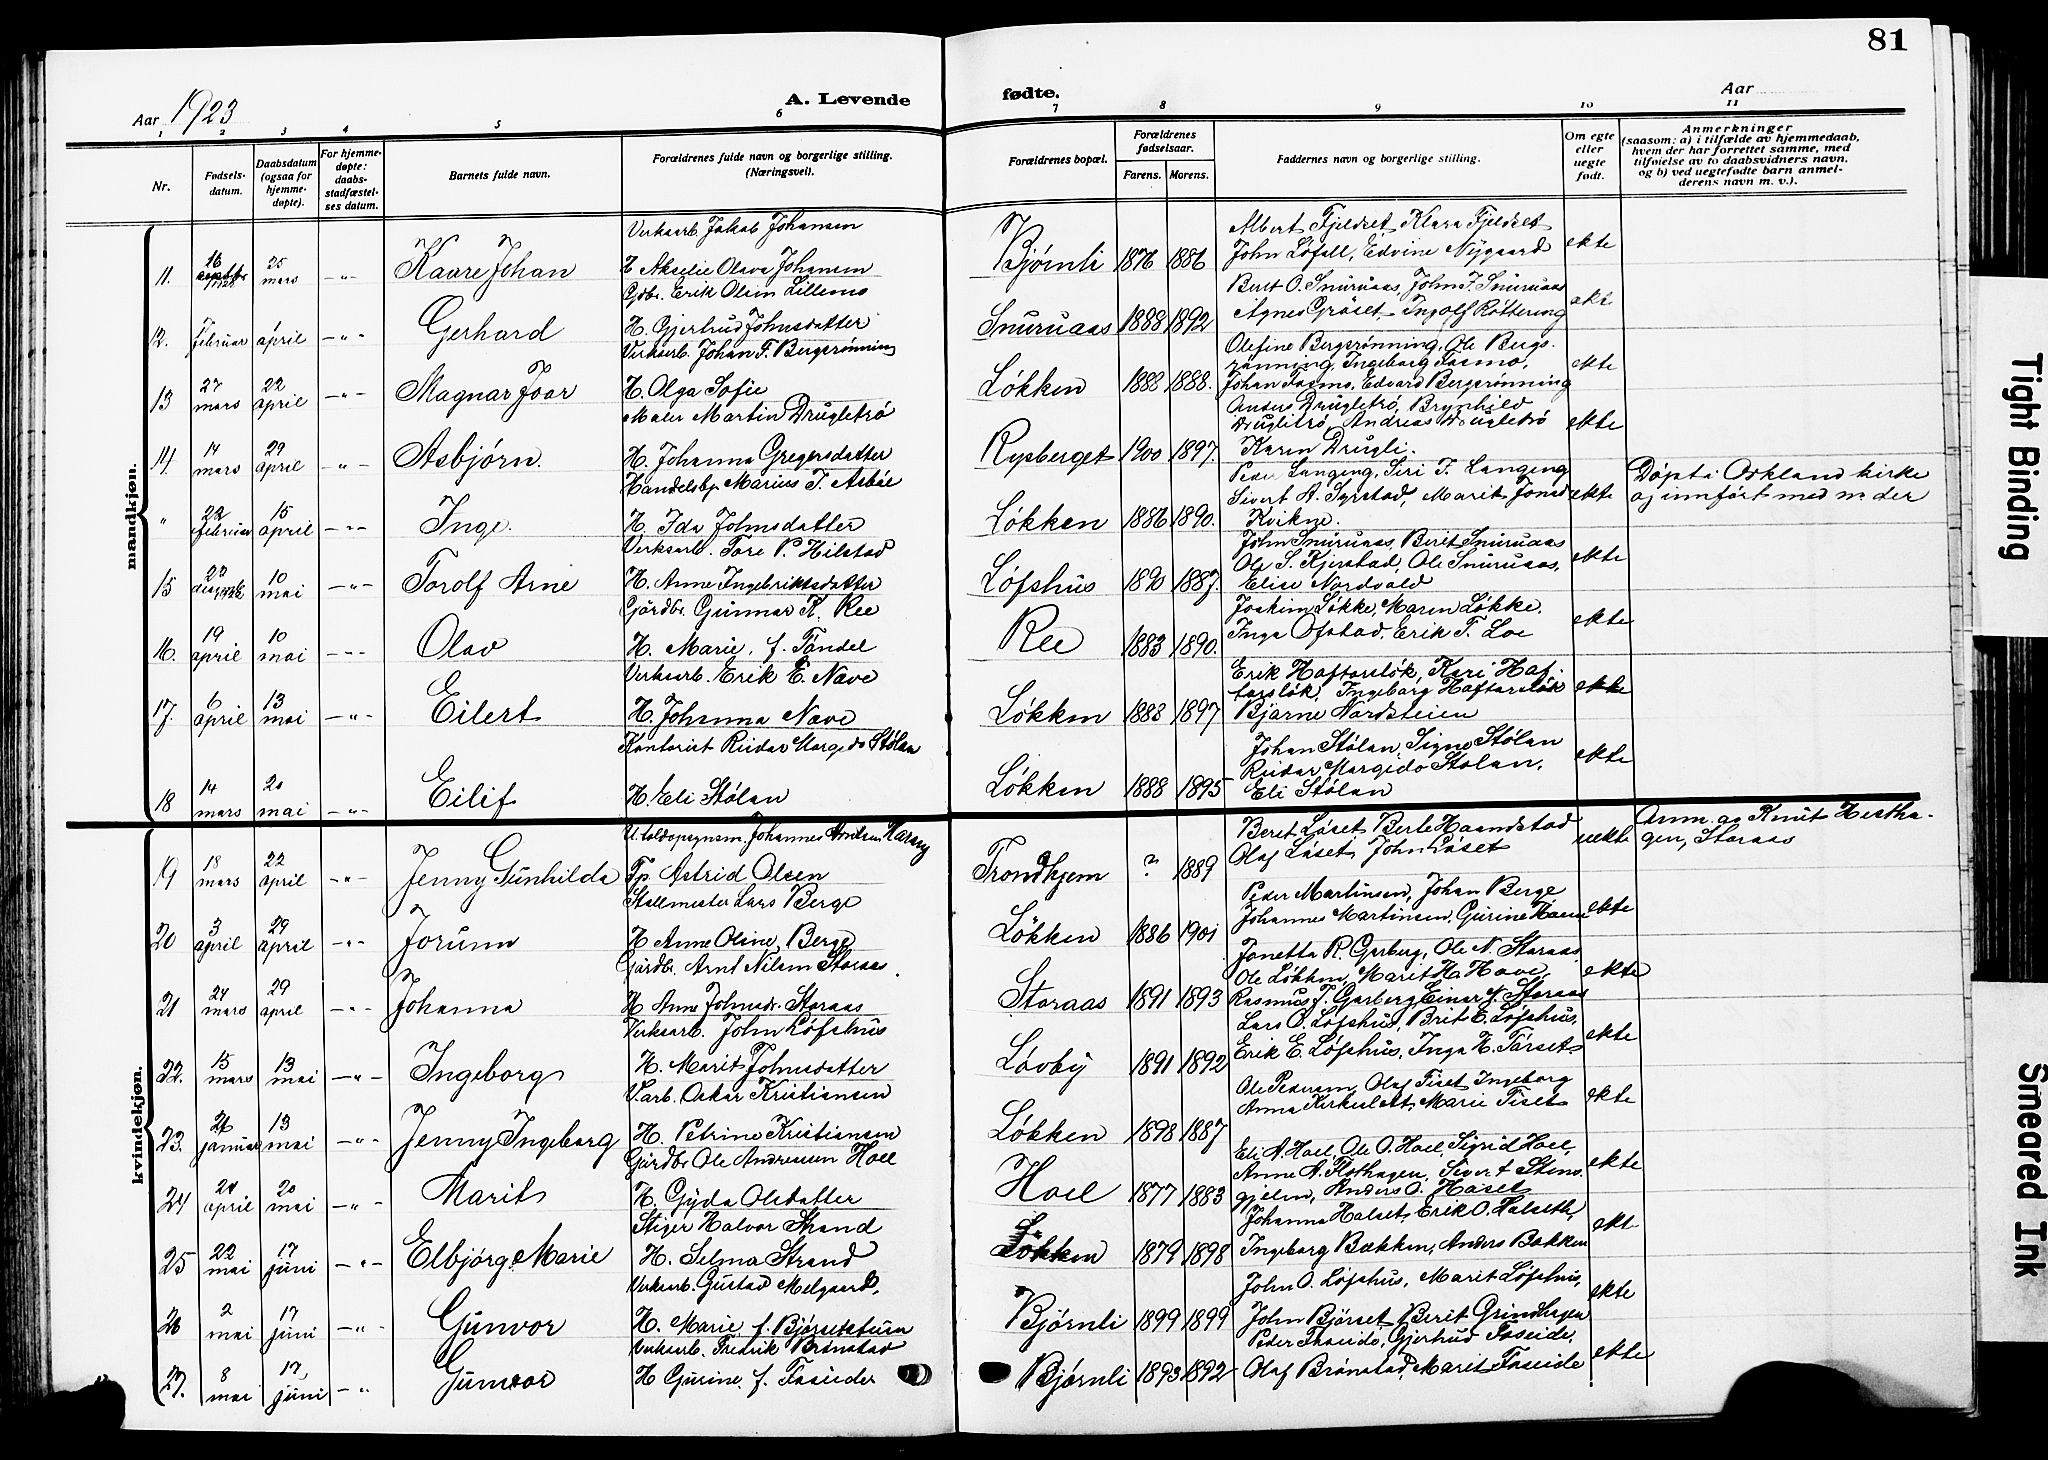 81
Aar 1923
A. Levende
fødte.
Aar
1 2 3 4 5 6 7 8 9 10 11
Nr.
Fødsels-
datum.
Daabsdatum
(ogsaa for
hjemme-
døpte).
For hjemme-
døpte:
daabs-
stadfæstel-
ses datum.
Barnets fulde navn.
Forældrenes fulde navn og borgerlige stilling.
(Næringsvei).
Forældrenes bopæl.
Forældrenes
fødselsaar.
Farens. Morens.
Faddernes navn og borgerlige stilling.
Om egte
eller
uegte
født.
Anmerkninger
(saasom: a) i tilfælde av hjemmedaab,
hvem der har forrettet samme, med
tilføielse av to daabsvidners navn,
og b) ved uegtefødte barn anmel-
derens navn m. v.).
mandkjøn.
Verksarb. Jakob Johansen
Albert Fjeldset, Klara Fjeldset
11. 16 25 mars -"- Kaare Johan H Akselie Olava Johansen Bjørnli 1876 1886 John Løfall, Edvine Nygaard ekte
Gdbr. Erik Olsen Lillemo
Beret O. Snuruaas, John F. Snuruaas
12. februar april -"- Gerhard H. Gjertrud Johnsdatter Snuruaas 1888 1892 Agnes Grøset, Ingolf Røttering ekte
Verksarb. Johan F. Bergsrønning
Olefine Bergsrønning, Ole Bergs-
rønning, Ingeborg Fosmo,
13 27 mars 22 april -"- Magnar Joar H. Olga Sofie Løkken 1888 1888. Johan Fosmo, Edvard Bergsrønning ekte
Maler Martin Drugletrø
Anders Drugletrø, Brynhild
Drugletrø, Andreas Drugletrø
14. 14 mars 29 april -"- Asbjørn. H. Johanna Gregersdatter Rypberget 1900 1897. Karen Drugli. ekte
Handelsbp. Marius T. Asbøe
Peder Langeng, Siri F. Langeng
Sivert A. Syrstad, Marit Jonsd
" 22 februar 15 april -"- Inge. H. Ida Johnsdatter Løkken 1886 1890. Kvikne. ekte
Døpt i Orkland kirke
og innført med nr der
Verksarb. Tore P. Hilstad
John Snuruaas, Beret Snuruaas
Ole S. Kjerstad, Ole Snuruaas,
15 22 10 mai -"- Torolf Arne H. Anne Ingebriktsdatter Løfshus 1890 1887. Elise Nordvald ekte
Gårdbr. Gunnar K. Ree
Joakim Løkke, Maren Løkke.
16. 19 april 10 mai -"- Olav H. Marie, f. Tøndel Ree 1883 1890. Inga Ofstad, Erik T. Loe ekte
Verksarb. Erik E. Næve
Erik Haftorsløk, Kari Haf-
torsløk, Ingeborg Haftorsløk
17. 6 april 13 mai -"- Eilert H. Johanna Næve Løkken 1888 1897 Bjarne Nordsteien ekte
Kontorist Reidar Margido Stølan
Johan Stølan, Signe Stølan
Reidar Margido Stølan,
18 14 mars 20 mai -"- Eilif H. Eli Stølan Løkken 1888 1895 Eli Stølan ekte
kvindekjøn.
Beret Løset, Berte Haandstad
19 18 mars 22 april -"- Jenny Gunhilda Tp. Astrid Olsen Trondhjem ? 1889 Olaf Løset, John Løset uekte
Anm. av Knut Hestha-
gen, Storaas
Stallmester Lars Berge
Peder Martinsen, Johan Berge
20 3 april 29 april -"- Jorunn H Anne Oline Berge Løkken 1886 1901 Johannes Martinsen, Gurine ekte
Gårdbr. Arnt Nilsen Storaas
Jonetta R. Garberg, Ole N. Storaas
Ole Løkken, Marit H. Hove,
21 24 mars 29 april -"- Johanna H Anne Johnsdr. Storaas Storaas 1891 1893 Rasmus J. Garberg, Einar Storaas ekte
Verksarb. John Løfshus
Lars O. Løfshus, Brit E. Løfshus,
22. 15 mars 13 mai -"- Ingeborg H. Marit Johnsdatter Løvby 1891 1892 Erik E. Løfshus, Inga H. Tørset ekte
V.arb. Oskar Kristiansen
Ole Pedersen, Olaf Fiset, Ingeborg
Anna Kirkeslett, Marie Fiset
23. januar 13 mai -"- Jenny Ingeborg H. Petrine Kristiansen Løkken 1898 1887 ekte
Gårdbr. Ole Andreasen Hoel
Eli A. Hoel, Ole O. Hoel, Sigrid Hoel,
Anne A. Flothagen, Sivert
24 april 20 mai -"- Marit H. Gyda Olsdatter Hoel 1877 1883 gjelm, Anders O. Høset ekte
Stiger Halvor Strand
Johanna Halset, Erik O. Halseth,
25 22 mai 17 juni -"- Elbjørg Marie H. Selma Strand Løkken 1879 1898 Ingeborg Bækken, Anders Bækken ekte
Verksarb. Gustav Melgaard,
John O. Løfshus, Marit Løfshus,
26 2 mai 17 juni -"- Gunvor H. Marie, f. Bjørsetstuen Bjørnli 1899 1899 John Bjørset, Berit Grindhagen ekte
Verksarb. Fredrik Brønstad
Peder Faseide, Gjertrud Faseide,
27. 8 mai 17 juni -"- Gunvor H Gurine, f. Faseider Bjørnli 1893 1892 Olaf Brønstad, Marit Faseide ekte
Tight Binding
Smeared Ink